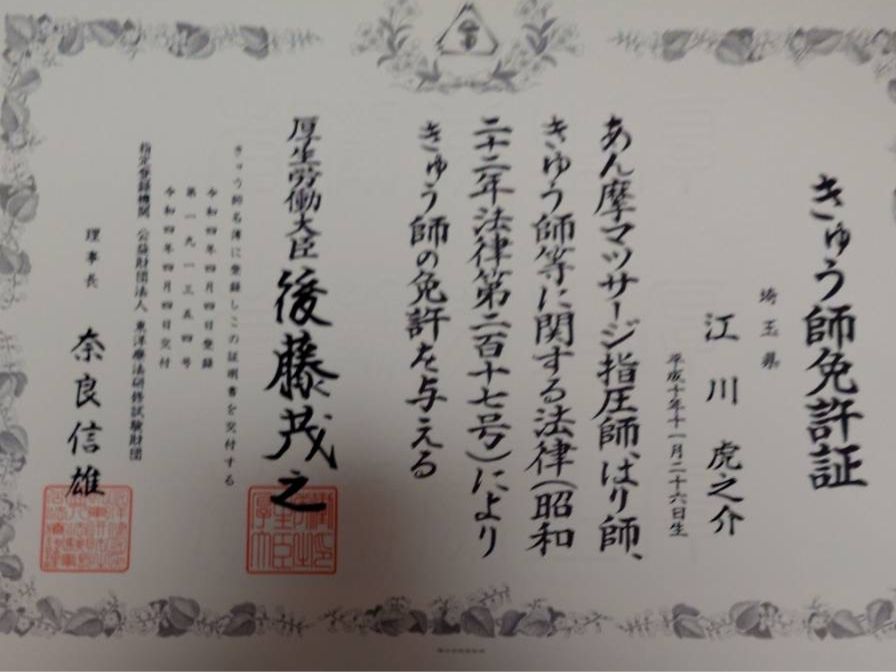 きゅう師免許証
埼玉県
江川 虎之介
平成十年十一月二十六日生
あん摩マツサージ指圧師、はり師、
きゆう師等に関する法律(昭和
二十二年法律第二百十七号)により
きゅう師の免許を与える
厚生労働大臣 後藤茂之
きゅう師名簿に登録しこの証明書を交付する
令和四年四月四日登録
第一九一三五四号
令和四年四月四日交付
指定登録機関 公益財団法人 東洋療法研修試験財団
理事長 奈良信雄